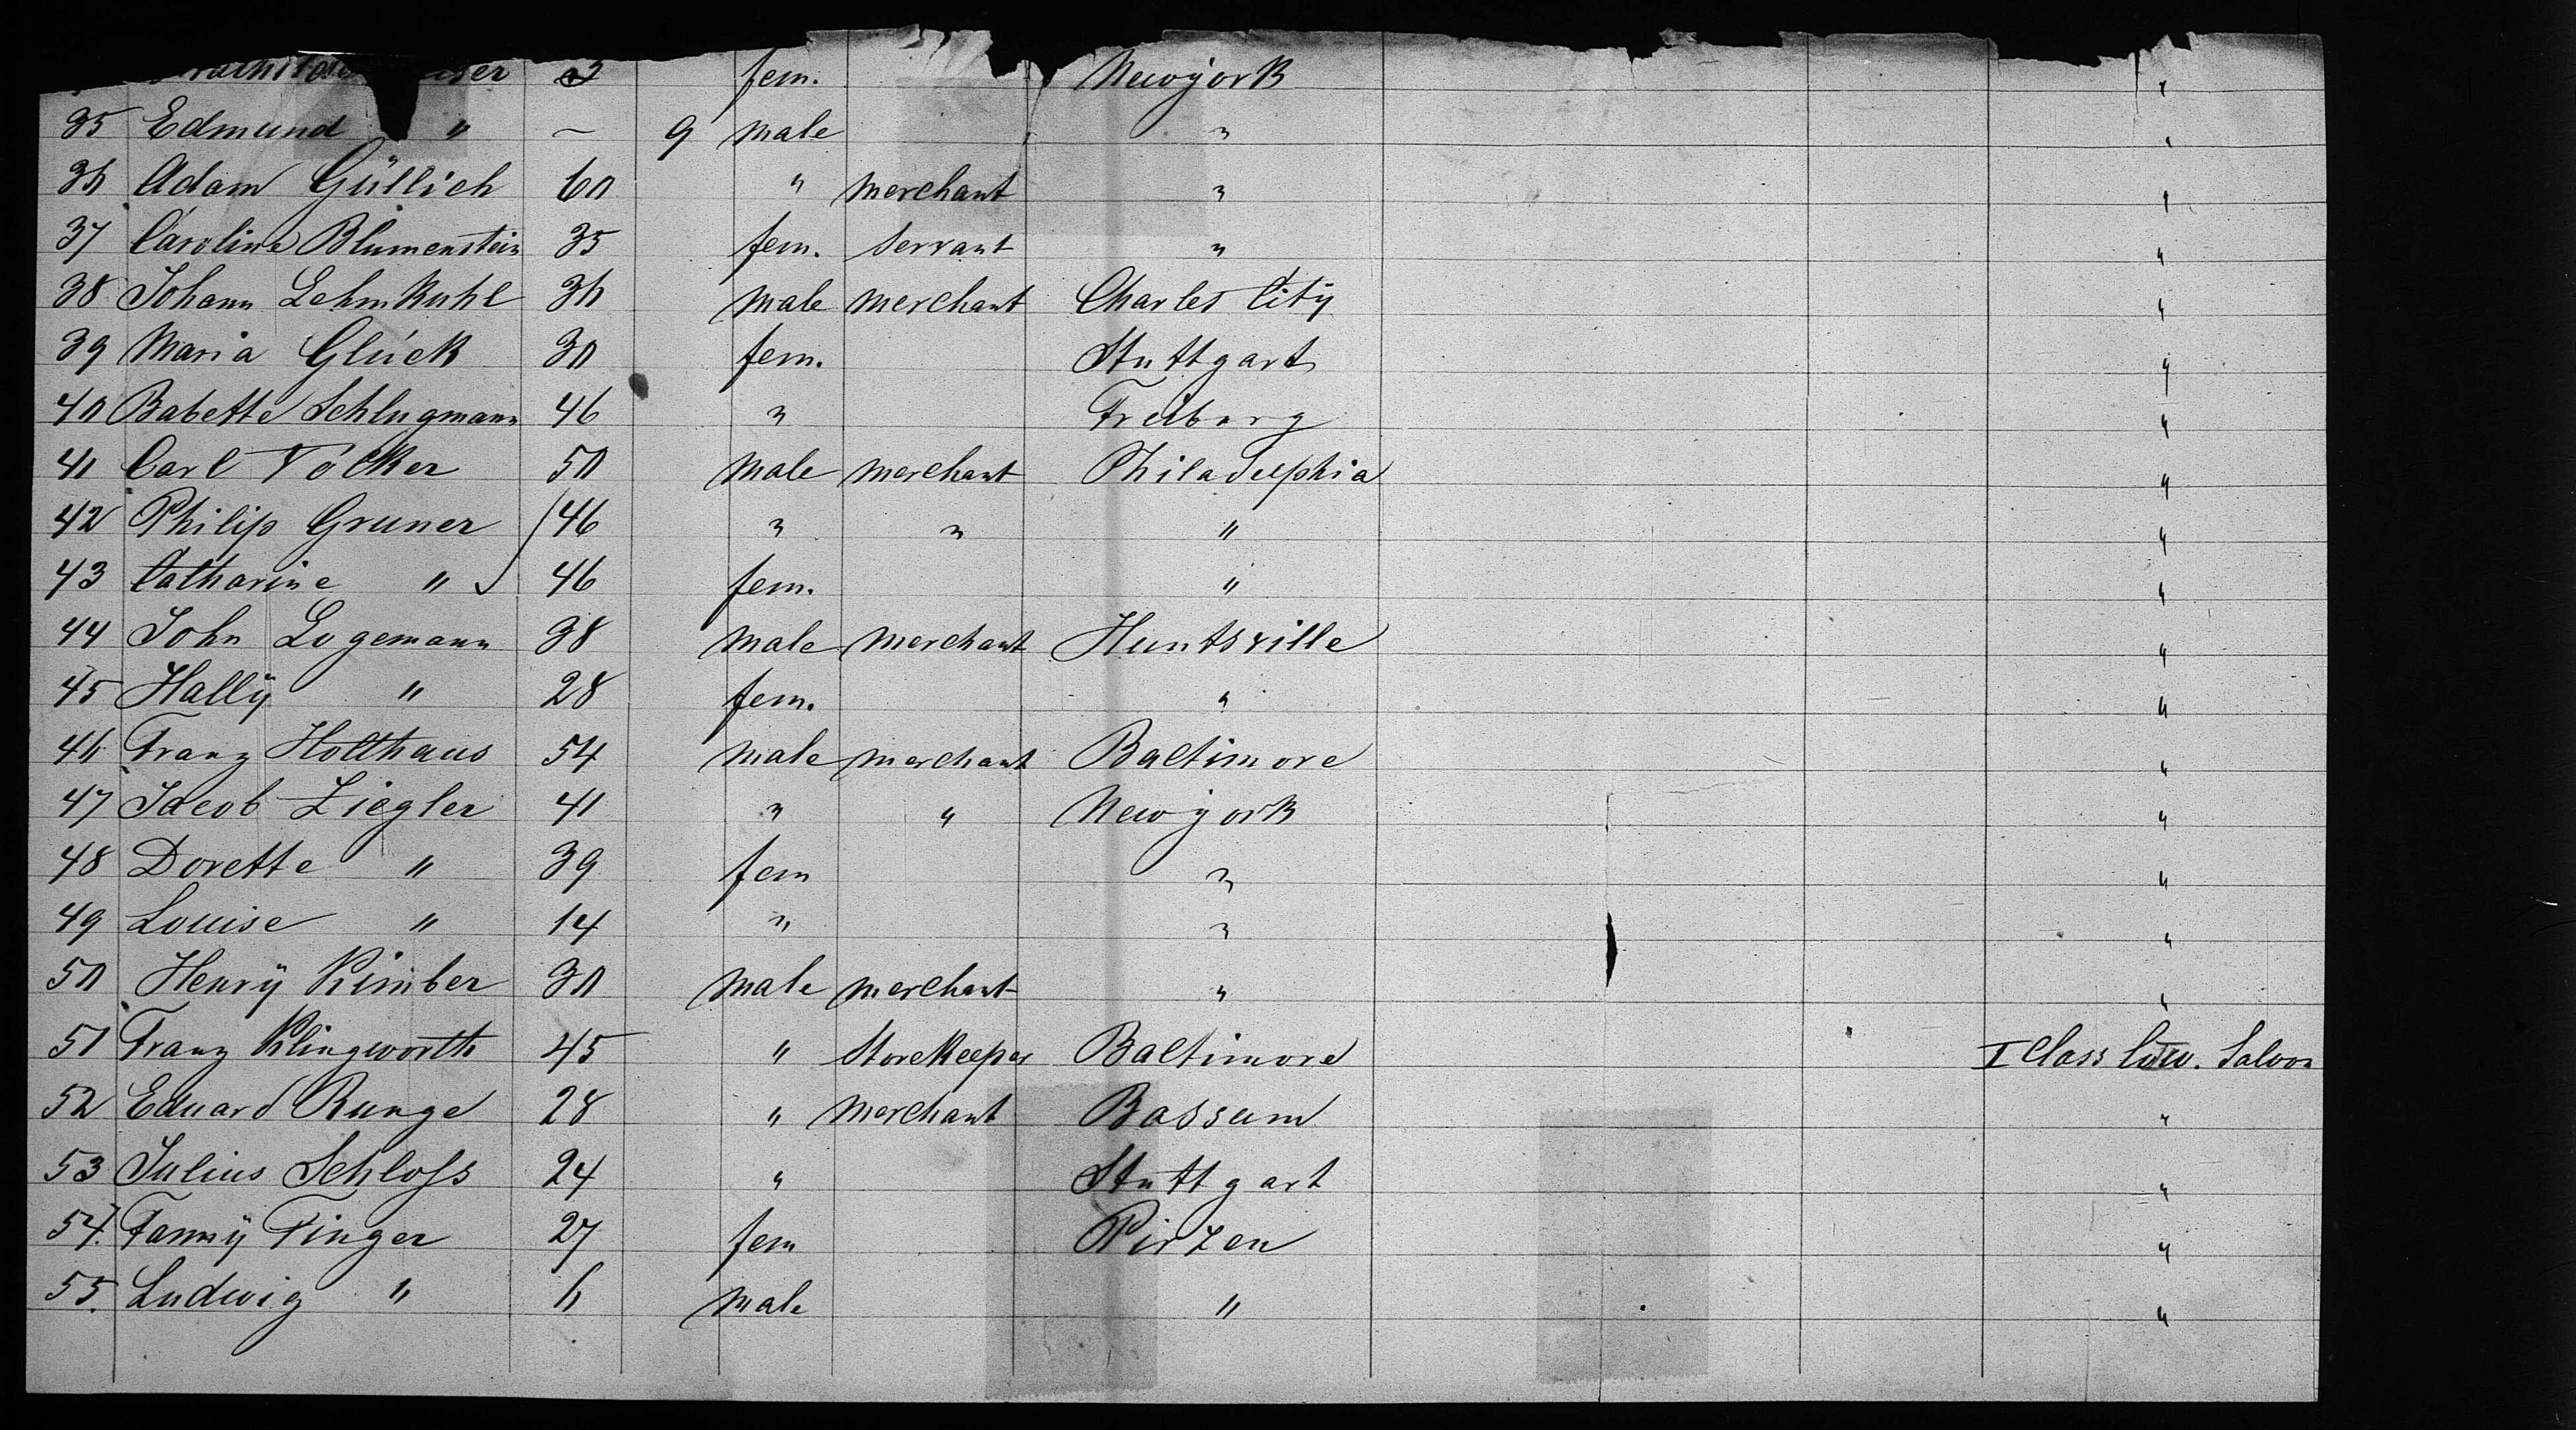 fem. Newÿork "
35 Edmund " — 9 male " "
36 Adam Güllich 60 " merchant " "
37 Caroline Blumenstein 35 fem. servant " "
38 Johann Lehmkuhl 36 male merchant Charles Citÿ "
39 Maria Glück 30 fem. Stuttgart "
40 Babette Schlugmann 46 " Freiburg "
41 Carl 50 male merchant Philadelphia "
42 Philip Gruner 46 " " " "
43 Catharine " 46 fem. " "
44 John Logemann 38 male merchant Huntsville "
45 Hallÿ " 28 fem. " "
46 Franz Holthaus 54 male merchant Baltimore "
47 Jacob Ziegler 41 " " Newÿork "
48 Dorette " 39 fem " "
49 Louise " 14 " " "
50 Henrÿ Kimber 30 male merchant " "
51 Franz Klingworth 45 " Storekeeper Baltimore I Class low. Saloon
52 Eduard Runge 28 " merchant Bassum "
53 Julius Schloss 24 " Stuttgart "
54. Fannÿ Finger 27 fem "
55. Ludwig " 6 male " "